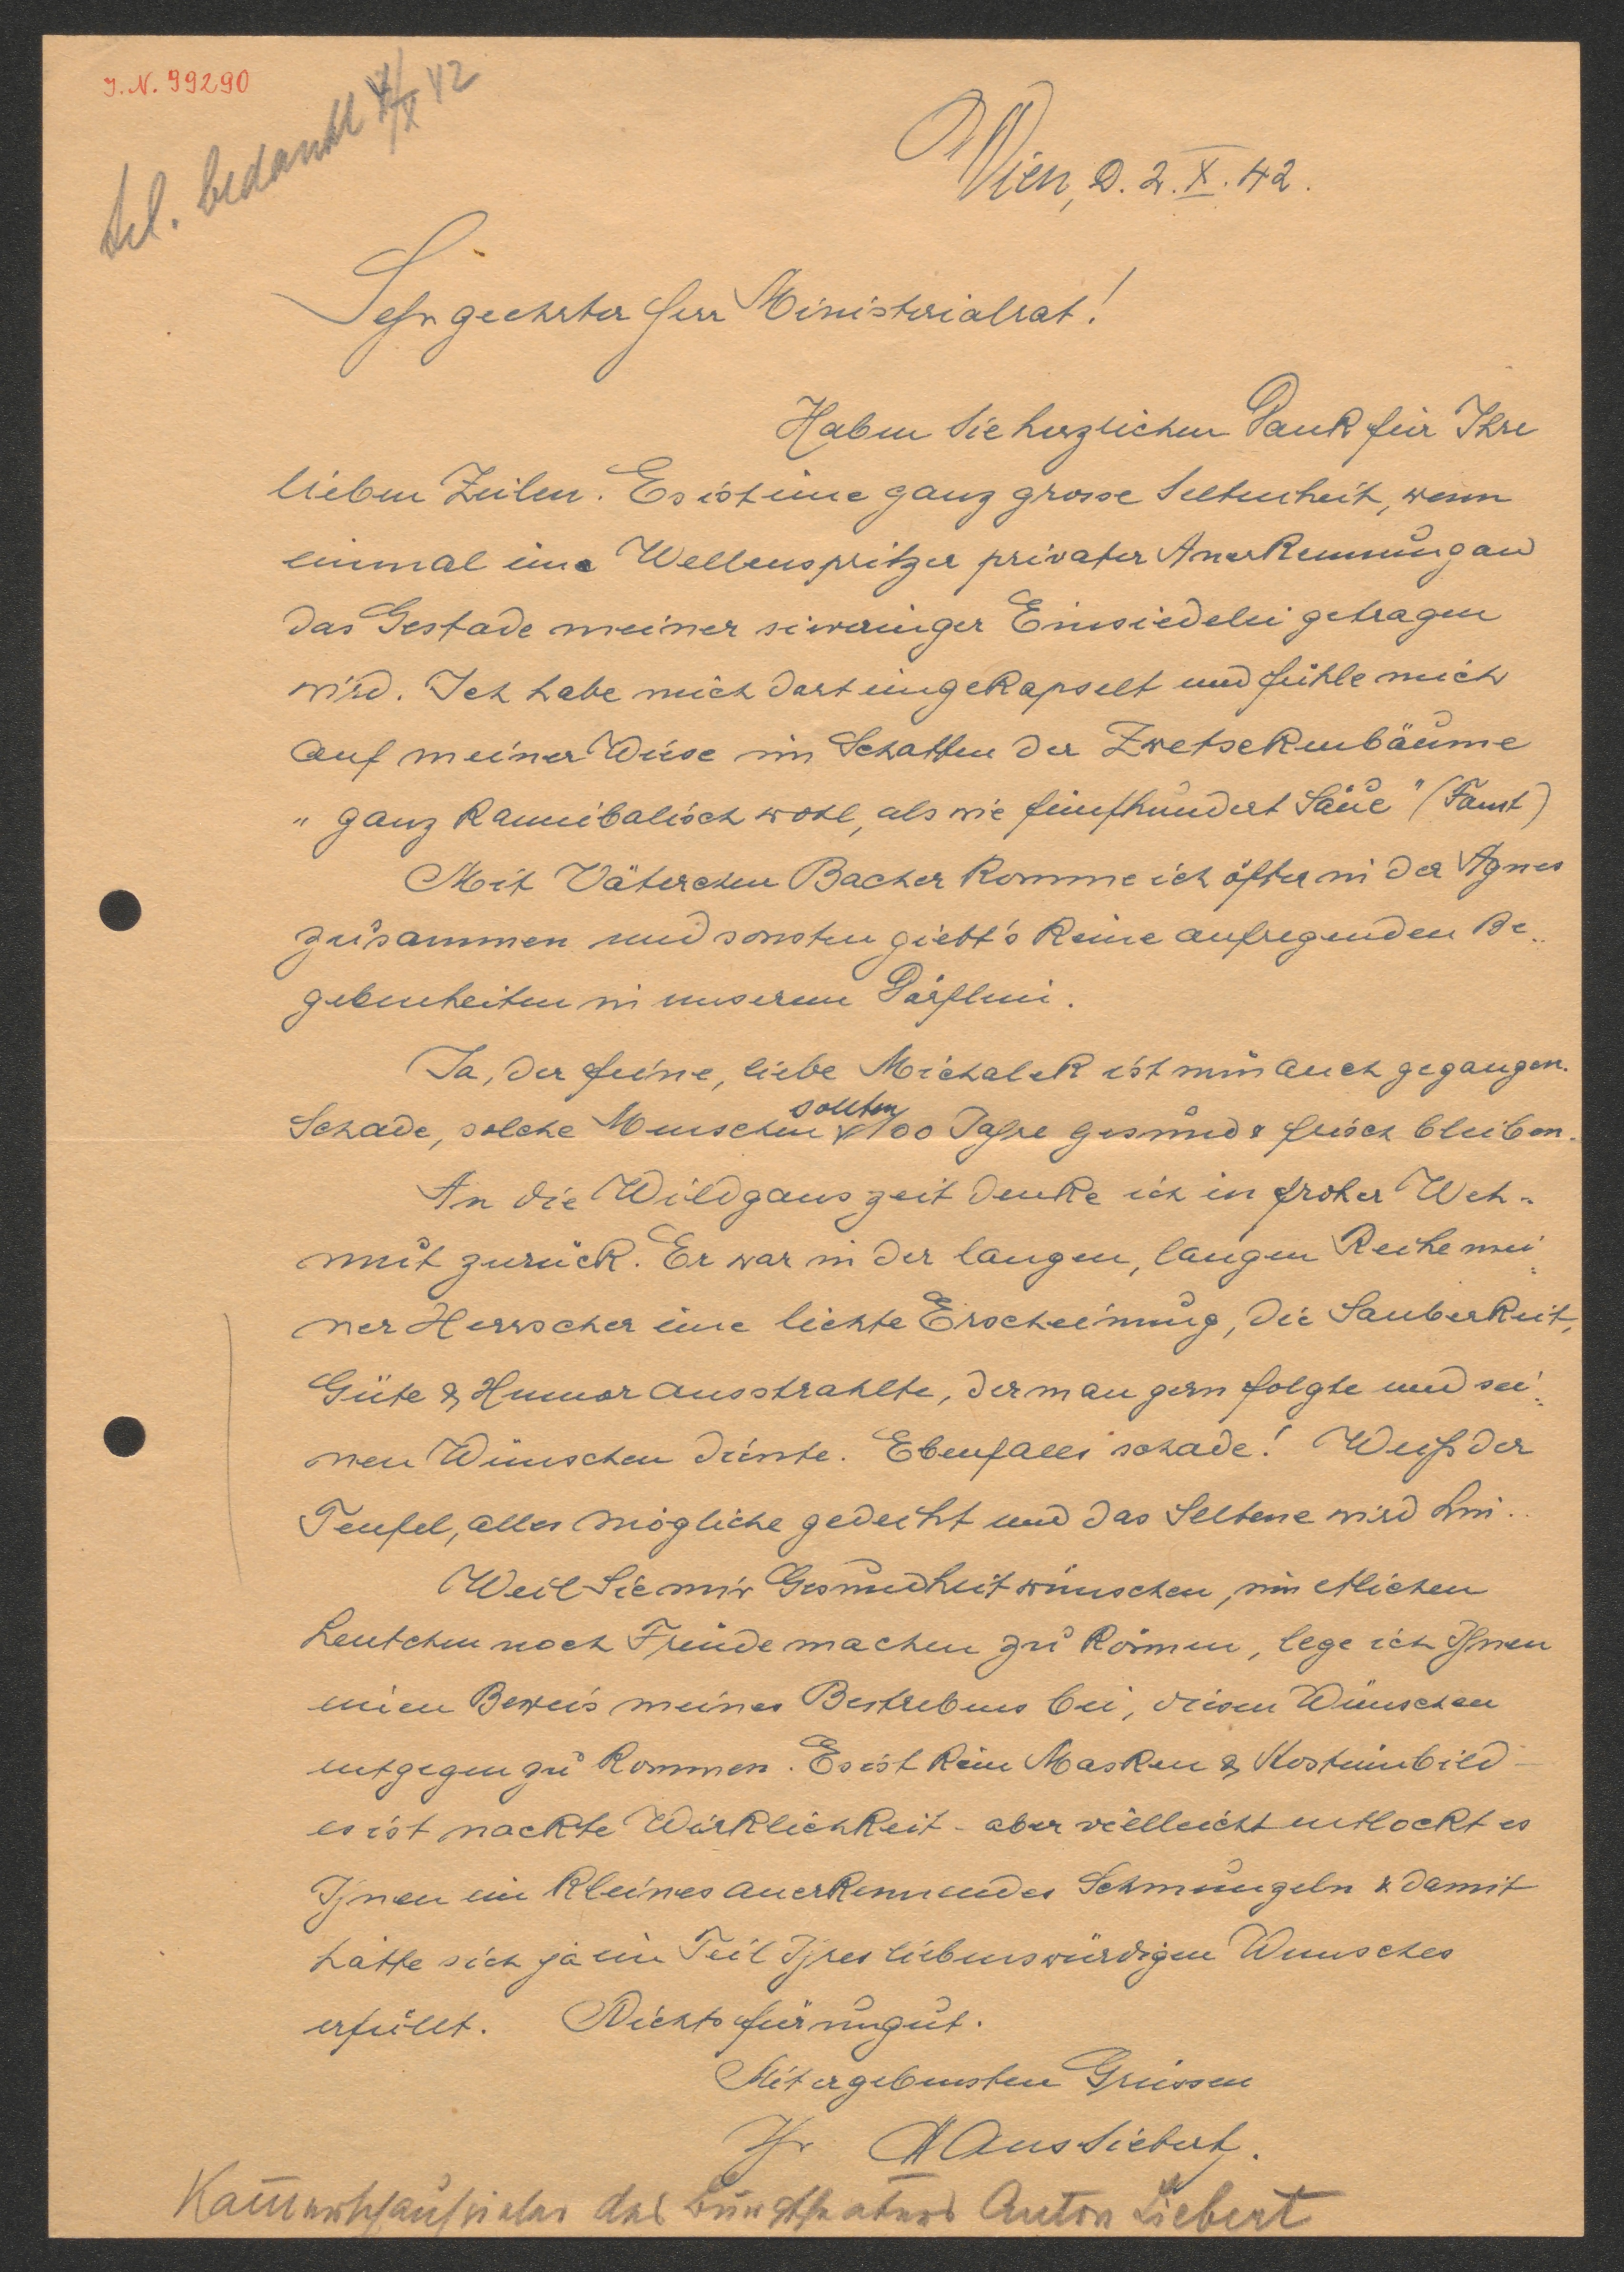 J. N. 99290
tel. bedankt 4/X 42
Wien, d. 2. X. 42.
Sehr geehrter Herr Ministerialrat!
Haben Sie herzlichen Dank für Ihre
lieben Zeilen. Es ist eine ganz grosse Seltenheit, wenn
einmal ein Wellenspritzer privater Anerkennung an
das Gestade meiner siveringer Einsiedelei getragen
wird. Ich habe mich dort eingekapselt und fühle mich
auf meiner Wiese im Schatten der Zwetschkenbäume
"ganz kannibalisch wohl, als wie fünfhundert Säue" (Faust)
Mit Väterchen Bacher komme ich öfter in der Agnes
zusammen und sonsten giebt's keine aufregenden Be-
gebenheiten in unserem Dörflein.
Ja, der feine, liebe Michalek ist nun auch gegangen.
Schade, solche Menschen sollten 100 Jahre gesund & frisch bleiben.
An die Wildganszeit denke ich in froher Weh-
mut zurück. Er war in der langen, langen Reihe mei-
ner Herrscher eine lichte Erscheinung, die Sauberkeit,
Güte & Humor ausstrahlte, der man gern folgte und sei-
nen Wünschen diente. Ebenfalls schade! Weiß der
Teufel, alles mögliche gedeiht und das Seltene wird hin..
Weil Sie mir Gesundheit wünschen, um etlichen
Leutchen noch Freude machen zu können, lege ich Ihnen
einen Beweis meines Bestrebens bei, diesen Wünschen
entgegen zu kommen. Es ist kein Masken & Kostümbild –
es ist nackte Wirklichkeit – aber vielleicht entlockt es
Ihnen ein kleines anerkennendes Schmungeln & damit
hätte sich ja ein Teil Ihres liebenswürdigen Wunsches
erfüllt. Nichts für ungut.
Mit ergebensten Grüssen
Ihr Hans Siebert.
Kammerschauspieler des Burgtheaters Anton Siebert